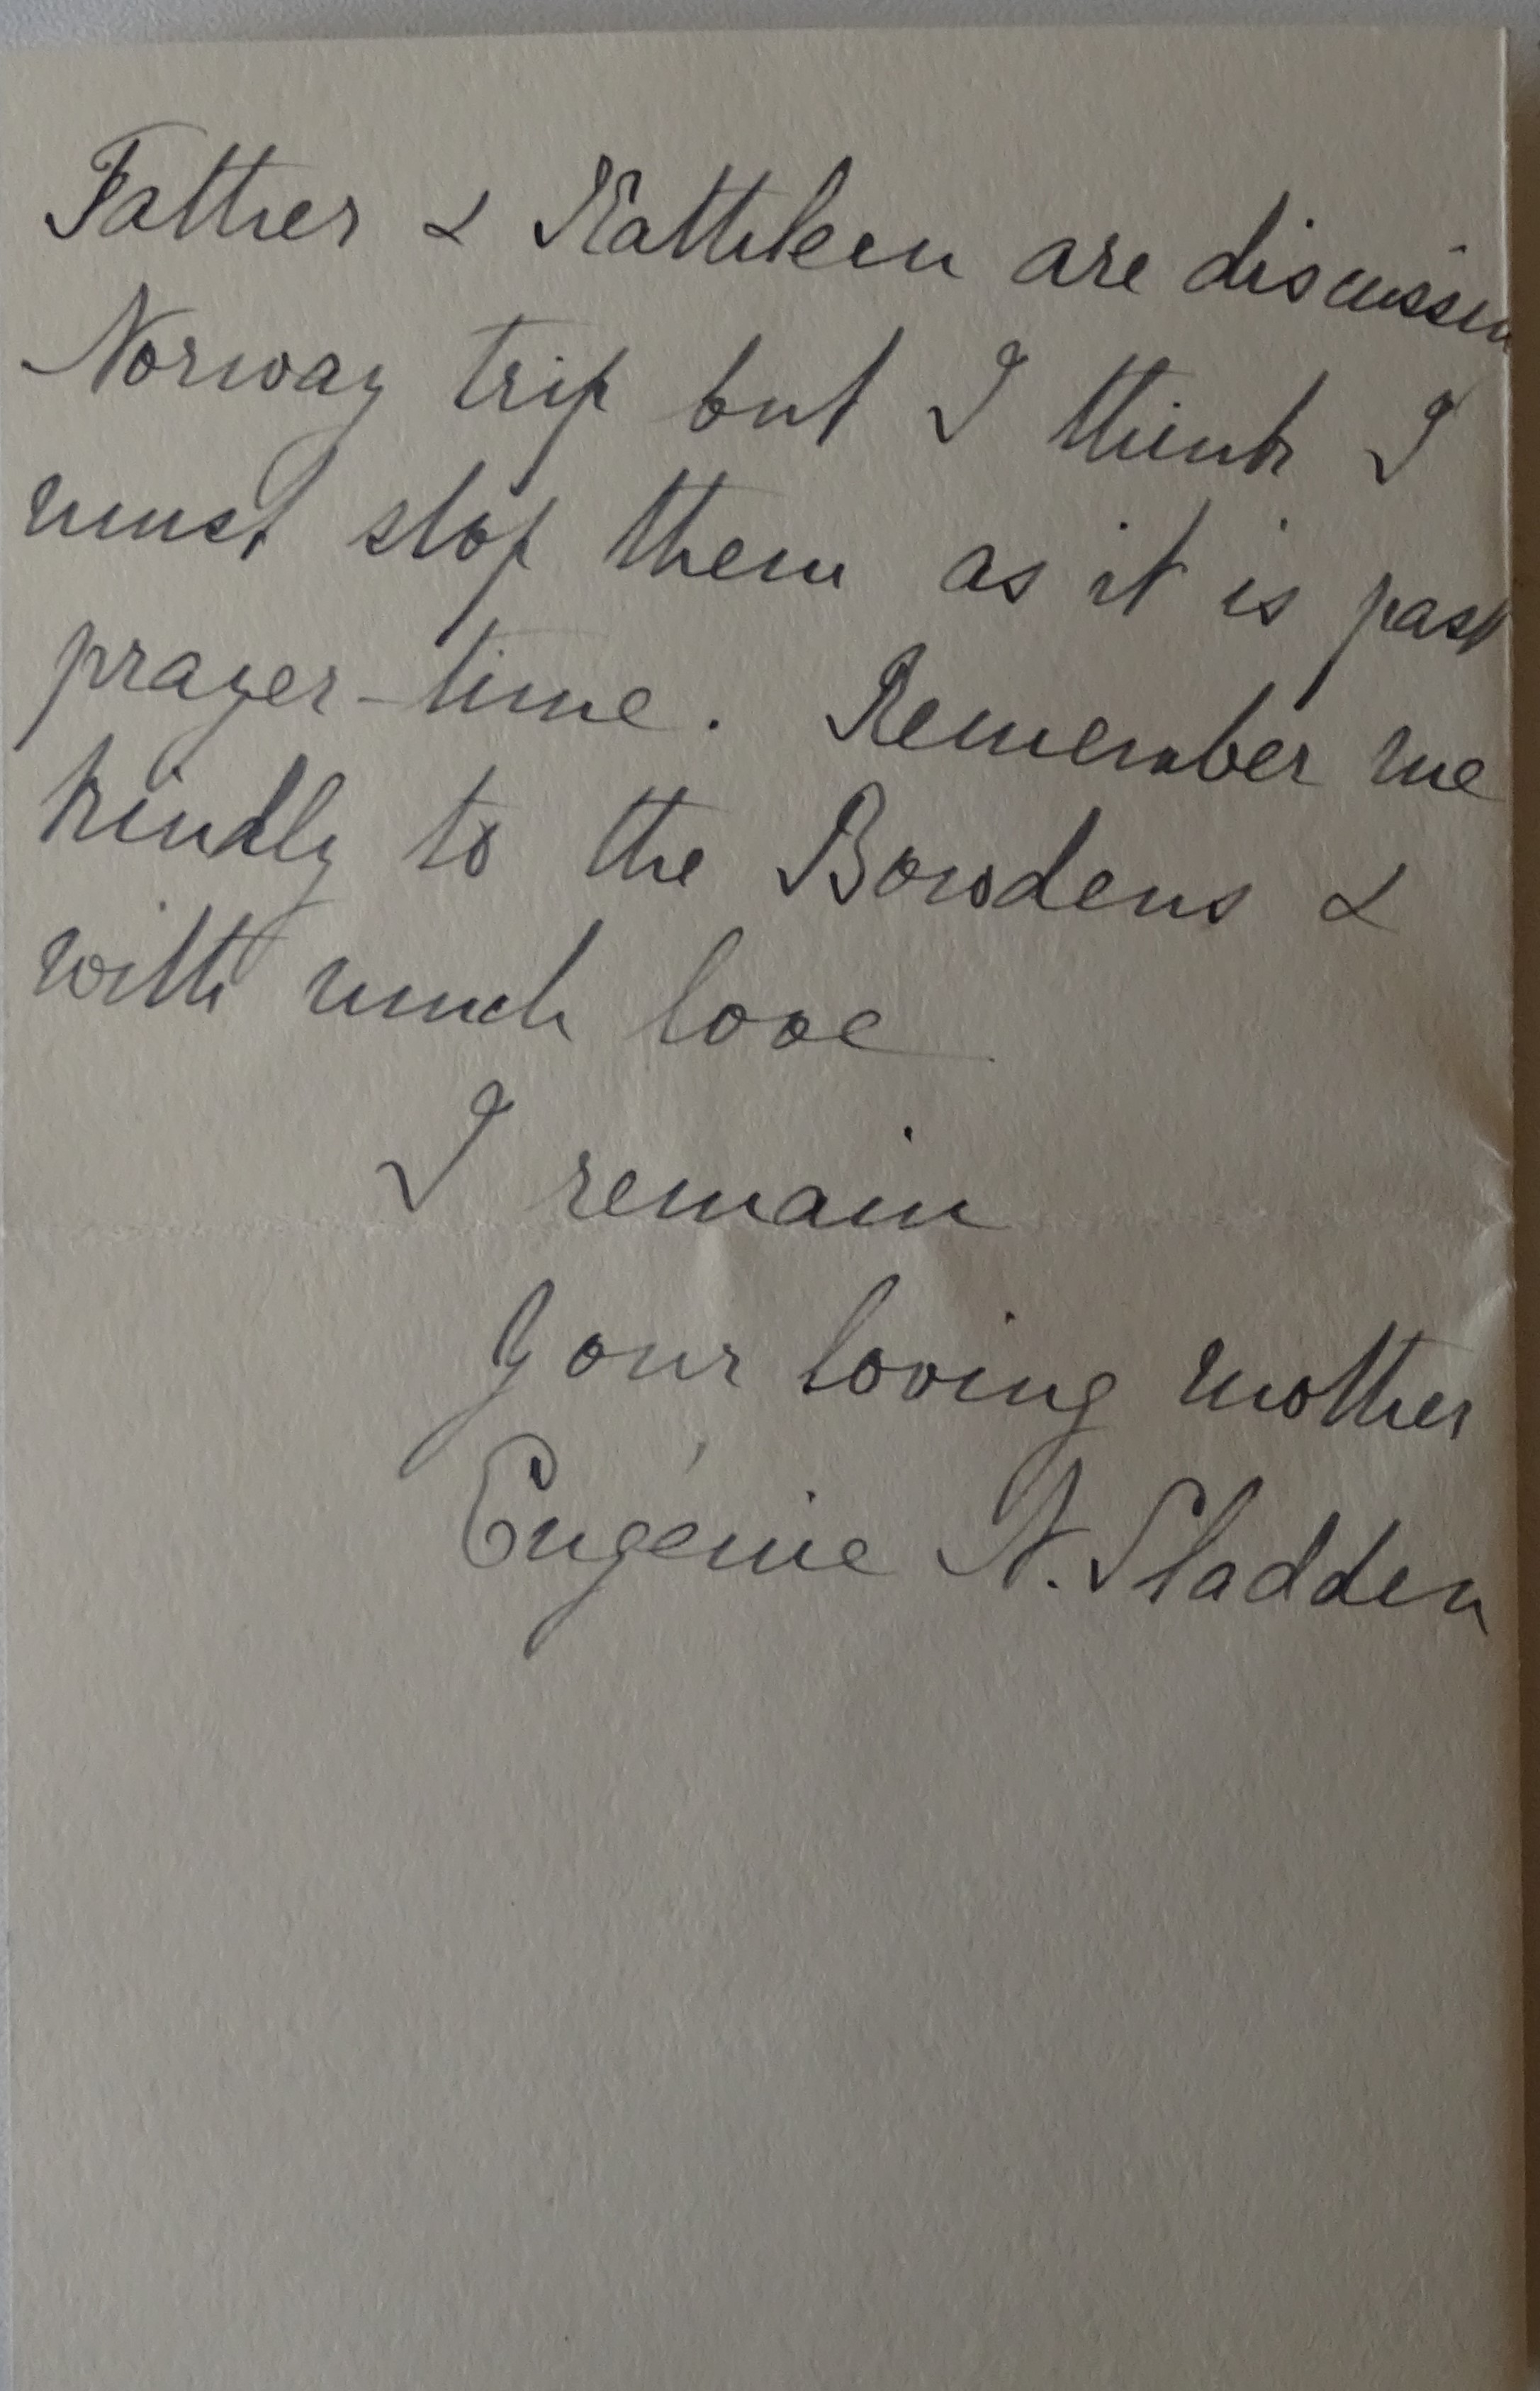 Father & Kathleen are discussin
Norway trip but I think I
must stop them as it is past
prayer-time. Remember me
kindly to the Bowdens &
with much love
I remain
Your loving mother
Eugénie N. Sladden